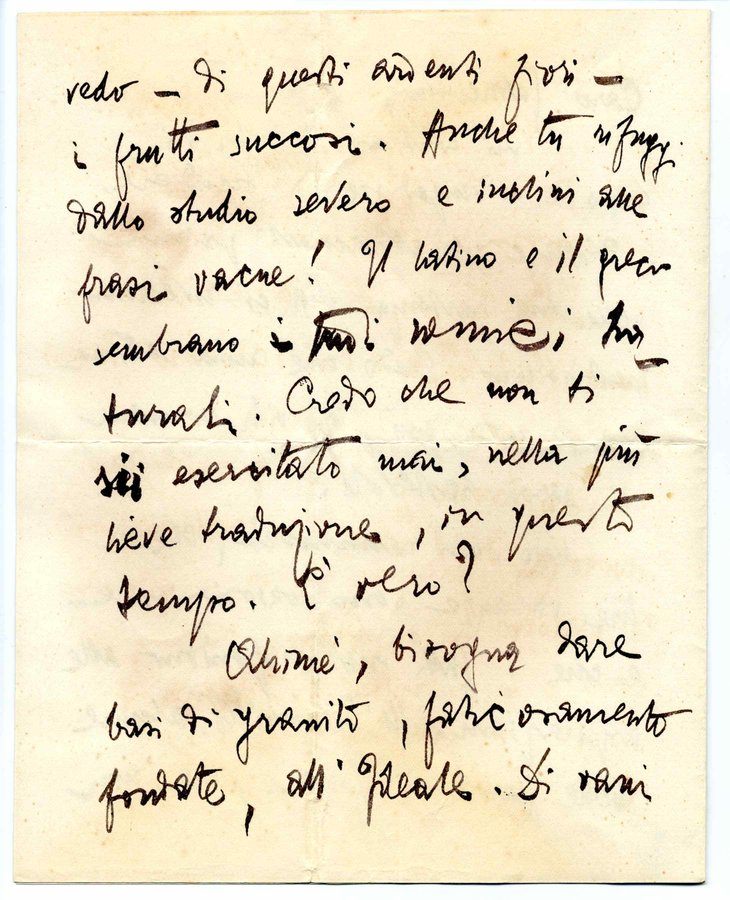 vedo — di questi ardenti fiori —
i frutti succosi. Anche tu rifuggi
dallo studio severo e inclini alle
frasi vacue! Il latino e il greco
sembrano i tuoi nemici na-
turali. Credo che non ti
sii esercitato mai, nella più
lieve traduzione, in questo
tempo. È vero?
Ahimè, bisogna dare
basi di granito, faticosamente
fondate, all'Ideale. Di vani